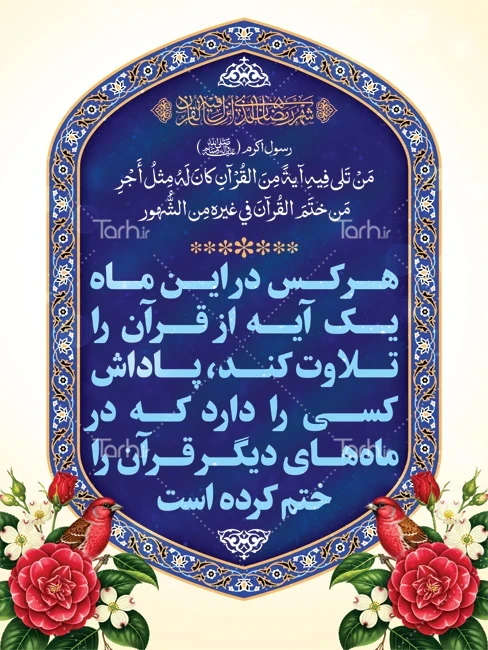 شهر رمضان الذی انزل فیه القرآن
رسول اکرم (صلی الله علیه وآله وسلم)
مَنْ تَلی فیهِ آیةً مِنَ القُرْآنِ کانَ لَهُ مِثْلُ أَجْرِ
مَن خَتَمَ القُرآنَ في غیرهِ مِنَ الشُّهور
هرکس در این ماه
یک آیه از قرآن را
تلاوت کند، پاداش
کسی را دارد که در
ماه‌های دیگر قرآن را
ختم کرده است
Tarh.ir
Tarh.ir
Tarh.ir
Tarh.ir
Tarh.ir
Tarh.ir